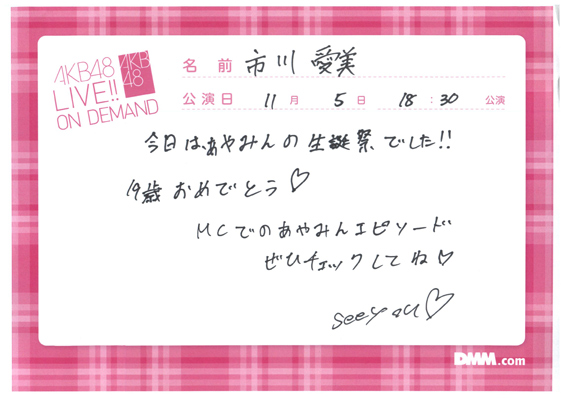 AKB48
LIVE!!
ON DEMAND
AKB
48
名前 市川 愛美
公演日 11月 5日 18:30 公演
今日は、あやみんの生誕祭でした!!
19歳おめでとう♡
MCでのあやみんエピソード
ぜひチェックしてね♡
see you♡
DMM.com